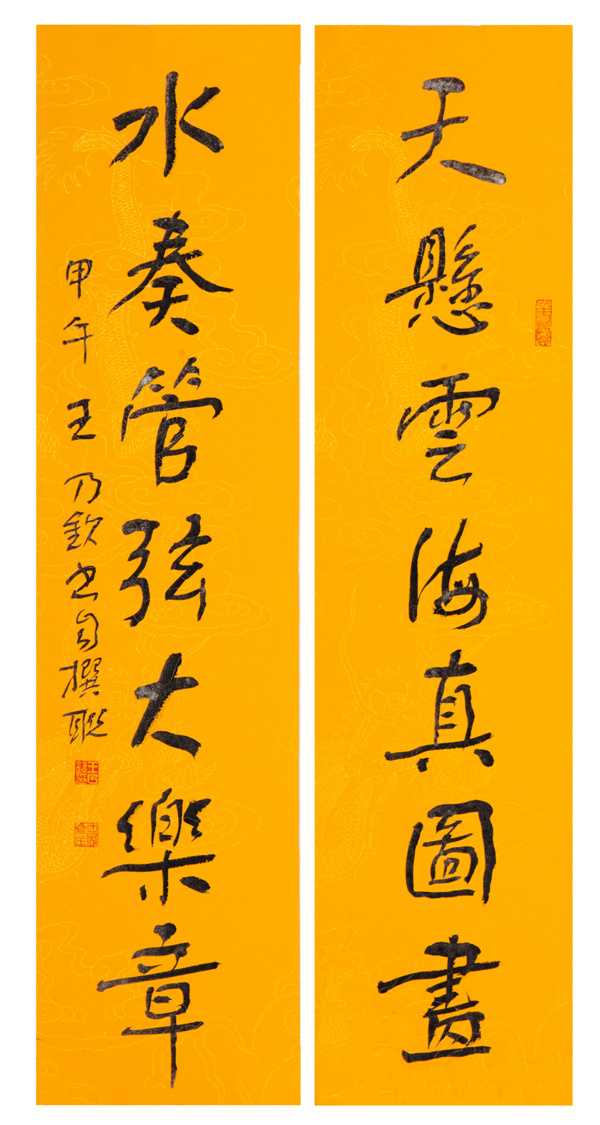 天懸雲海真圖畫
水奏管弦大樂章
甲午王乃欽書自撰聯